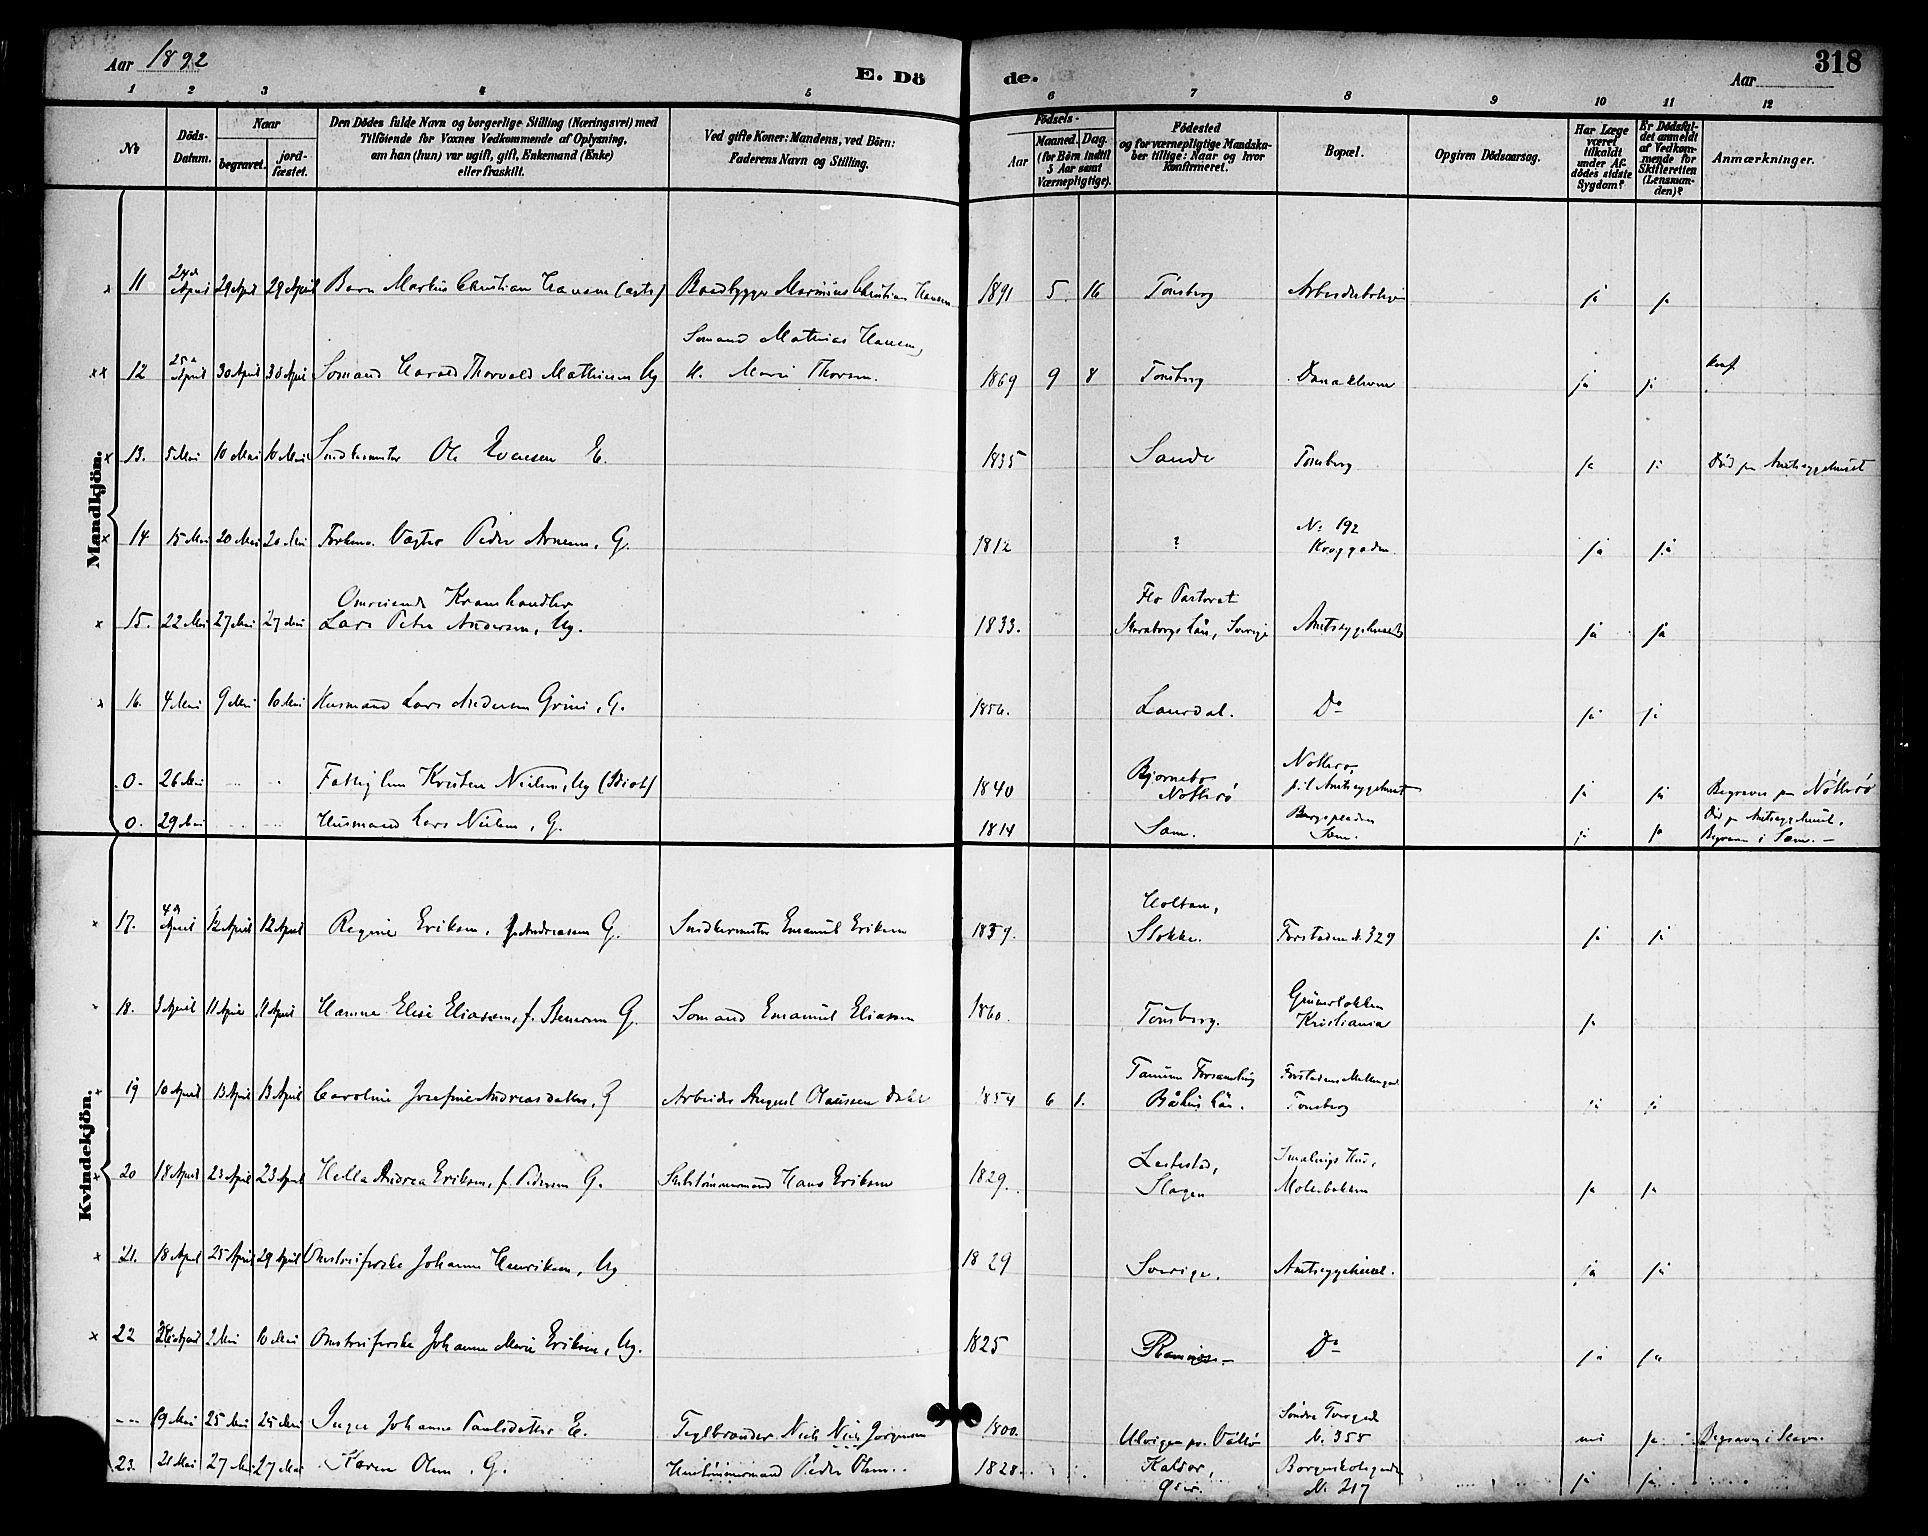 Aar 1892
E. Dö
de.
Aar
318
1 2 3 4 5 6 7 8 9 10 11 12
No
Döds-Datum.
Naar
begravet.
jord-fæstet.
Den Dödes fulde Navn og borgerlige Stilling (Næringsvei) med
Tilföiende for Voxnes Vedkommende af Oplysning,
om han (hun) var ugift, gift, Enkemand (Enke)
eller fraskilt.
Ved gifte Koner: Mandens, ved Börn:
Faderens Navn og Stilling.
Födsels-
Aar
Maaned. Dag.
(for Börn indtil
5 Aar samt
Værnepligtige).
Födested
og for værnepligtige Mandska-
ber tillige: Naar og hvor
konfirmeret.
Bopæl.
Opgiven Dödsaarsag.
Har Læge
været
tilkaldt
under Af-
dödes sidste
Sygdom?
Er Dödsfal-
det anmeldt
af Vedkom-
mende for
Skifteretten
(Lensman-
den)?
Anmærkninger.
Mandkjön.
x 11 April 29 April 29 April Barn Martin Christian Hansen (ægte) Baadbygger Marinius Christian Hansen 1891 5 16 Tönsberg ja ja
Sömand Mathias Hansen,
xx 12 25 April 30 April 30 April Sömand Harald Thorvald Mathisen Ug H. Marie Thorsen. 1869 9 8 Tönsberg ja ja
x 13. 5 Mai 10 Mai 10 Mai Snedkermester Ole Evensen E. 1835 Sande Tönsberg ja ja Död paa Amtssygehuset
x 14 15 Mai 20 Mai 20 Mai Vægter Peder Arnesen, G. 1812 ? N: 192 ja ja
Omreisende Kramhandler
x 15. 22 Mai 27 Mai 27 Mai Lars Peter Andersen, Ug. 1833. Flo Pastorat
Skaraborgs Län, Sverige Amtssygehuset ja ja
x 16. 4 Mai 9 Mai 10 Mai Husmand Lars Andersen Grini, G. 1856. Laurdal. Do ja ja
0. 26 Mai Kristen Nielsen, Ug (Idiot) 1840 Bjørnebo
Nötterö Nötterö,
p. t. Amtssygehuset ja ja Begraves paa Nötterö
0. 29 Mai Husmand Lars Nielsen, G. 1814 Sem. Sem. ja ja Död paa Amtssygehuset.
Begraven i Sem.
Kvindekjön.
x 17. 4 April 12 April 12 April Regine Eriksen, f. Andreassen G. Snedkermester Emanuel Eriksen 1839. Holtan,
Stokke. Forstaden N. 329 ja ja
18. 3 April 11 April 11 April Hanna Elise Eliassen, f. Stenersen G. Sömand Emanuel Eliassen 1860. Tönsberg. Grünerløkken
Kristiania ja
x 19 10 April 13 April 13 April Caroline Josefine Andreasdatter, G Arbeider August Olaussen Dahl 1854 6 1. Tanum Forsamling
Båhus Län. Tönsberg ja ja
x 20 18 April 23 April 23 April Hella Andrea Eriksen, f. Pedersen G. Skibstömmermand Hans Eriksen 1829.
Slagen ja ja
x 21. 18 April 25 April 29 April Omstreiferske Johanne Henriksen, Ug 1829 Sverige. Amtssygehuset. ja ja
x 22 April 2 Mai 10 Mai Omstreiferske Johanne Marie Eriksen, Ug. 1825 Ramnes. Do ja ja
19 Mai 25 Mai 25 Mai Inger Johanne Paulsdatter E. Teglbrænder Niels Jörgensen 1800. Söndre
N. 358 nei ja Begraven i
23. 21 Mai 27 Mai 27 Mai Karen Olsen, G. Hustömmermand Peder Olsen. 1828.
N. 217 ja ja